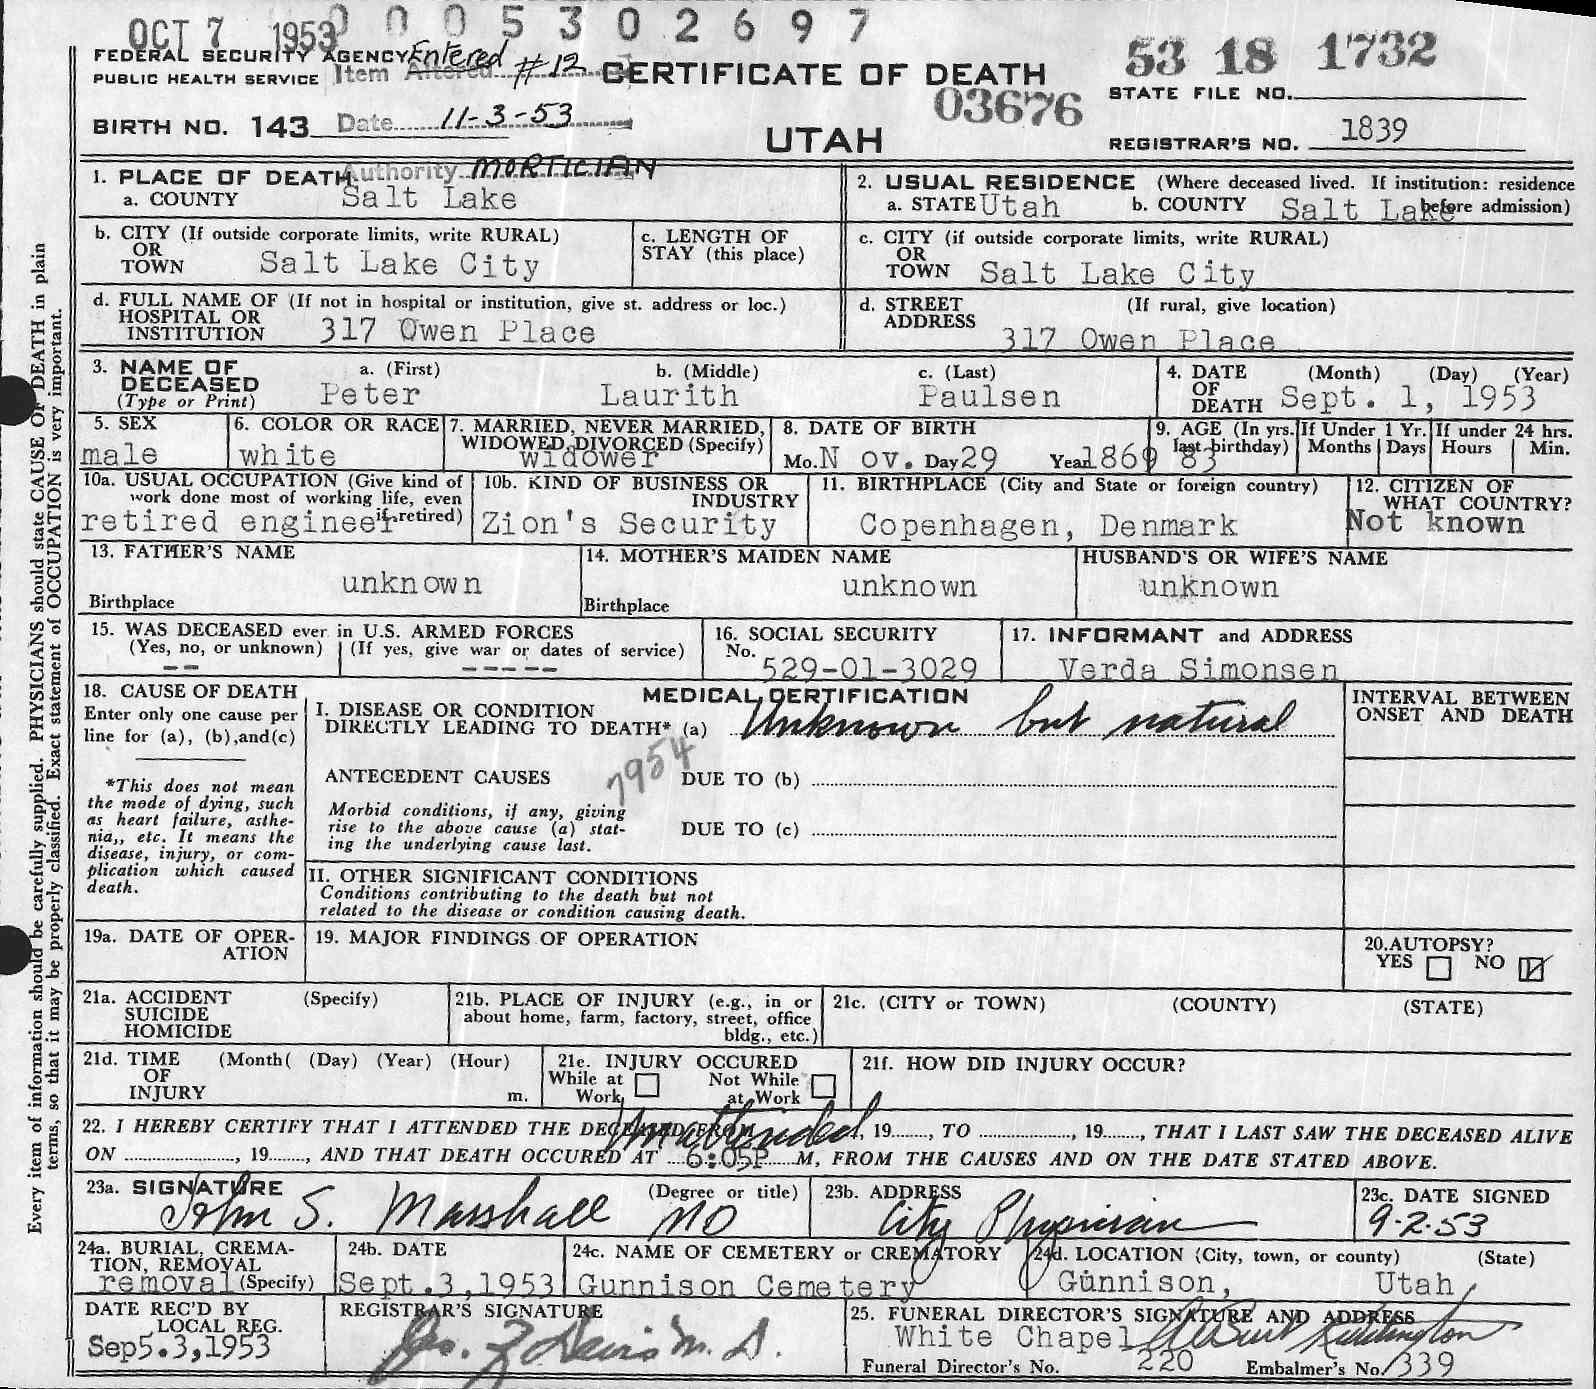 OCT 7 1953 0 0 0 5 3 0 2 6 9 7
FEDERAL SECURITY AGENCY Entered
PUBLIC HEALTH SERVICE Item Altered #12
CERTIFICATE OF DEATH
53 18 1732
STATE FILE NO.
03676
BIRTH NO. 143 Date 11-3-53
UTAH
REGISTRAR'S NO. 1839
Authority MORTICIAN
1. PLACE OF DEATH
a. COUNTY Salt Lake
2. USUAL RESIDENCE (Where deceased lived. If institution: residence before admission)
a. STATE Utah b. COUNTY Salt Lake
b. CITY (If outside corporate limits, write RURAL)
OR
TOWN Salt Lake City
c. LENGTH OF
STAY (this place)
c. CITY (if outside corporate limits, write RURAL)
OR
TOWN Salt Lake City
d. FULL NAME OF (If not in hospital or institution, give st. address or loc.)
HOSPITAL OR
INSTITUTION 317 Owen Place
d. STREET (If rural, give location)
ADDRESS
317 Owen Place
3. NAME OF a. (First) b. (Middle) c. (Last)
DECEASED
(Type or Print) Peter Laurith Paulsen
4. DATE (Month) (Day) (Year)
OF
DEATH Sept. 1, 1953
5. SEX
male
6. COLOR OR RACE
white
7. MARRIED, NEVER MARRIED,
WIDOWED, DIVORCED (Specify)
widower
8. DATE OF BIRTH
Mo. N ov. Day 29 Year 1869
9. AGE (In yrs. last birthday) 83
If Under 1 Yr.
Months Days
If under 24 hrs.
Hours Min.
10a. USUAL OCCUPATION (Give kind of
work done most of working life, even
if retired)
retired engineer
10b. KIND OF BUSINESS OR
INDUSTRY
Zion's Security
11. BIRTHPLACE (City and State or foreign country)
Copenhagen, Denmark
12. CITIZEN OF
WHAT COUNTRY?
Not known
13. FATHER'S NAME
unknown
Birthplace
14. MOTHER'S MAIDEN NAME
unknown
Birthplace
HUSBAND'S OR WIFE'S NAME
unknown
15. WAS DECEASED ever in U.S. ARMED FORCES
(Yes, no, or unknown) (If yes, give war or dates of service)
-- -----
16. SOCIAL SECURITY
No.
529-01-3029
17. INFORMANT and ADDRESS
Verda Simonsen
18. CAUSE OF DEATH
Enter only one cause per
line for (a), (b),and(c)
*This does not mean
the mode of dying, such
as heart failure, asthe-
nia,, etc. It means the
disease, injury, or com-
plication which caused
death.
MEDICAL CERTIFICATION
I. DISEASE OR CONDITION
DIRECTLY LEADING TO DEATH* (a) Unknown but natural
7954
ANTECEDENT CAUSES DUE TO (b)
Morbid conditions, if any, giving
rise to the above cause (a) stat-
ing the underlying cause last.
DUE TO (c)
INTERVAL BETWEEN
ONSET AND DEATH
II. OTHER SIGNIFICANT CONDITIONS
Conditions contributing to the death but not
related to the disease or condition causing death.
19a. DATE OF OPER-
ATION
19. MAJOR FINDINGS OF OPERATION
20.AUTOPSY?
YES NO
21a. ACCIDENT (Specify)
SUICIDE
HOMICIDE
21b. PLACE OF INJURY (e.g., in or
about home, farm, factory, street, office
bldg., etc.)
21c. (CITY or TOWN) (COUNTY) (STATE)
21d. TIME (Month( (Day) (Year) (Hour)
OF
INJURY m.
21e. INJURY OCCURED
While at Not While
Work at Work
21f. HOW DID INJURY OCCUR?
22. I HEREBY CERTIFY THAT I ATTENDED THE DECEASED FROM Unattended, 19......, TO ..............., 19......, THAT I LAST SAW THE DECEASED ALIVE
ON ..............., 19......, AND THAT DEATH OCCURED AT 6:05P M, FROM THE CAUSES AND ON THE DATE STATED ABOVE.
23a. SIGNATURE (Degree or title)
John S. Marshall MD
23b. ADDRESS
City Physician
23c. DATE SIGNED
9-2-53
24a. BURIAL, CREMA-
TION, REMOVAL
removal (Specify)
24b. DATE
Sept.3,1953
24c. NAME OF CEMETERY or CREMATORY
Gunnison Cemetery
24d. LOCATION (City, town, or county) (State)
Gunnison, Utah
DATE REC'D BY
LOCAL REG.
Sep5.3,1953
REGISTRAR'S SIGNATURE
M. D.
25. FUNERAL DIRECTOR'S SIGNATURE AND ADDRESS
White Chapel
Funeral Director's No. 220 Embalmer's No. 339
Every item of information should be carefully supplied. PHYSICIANS should state CAUSE OF DEATH in plain
terms, so that it may be properly classified. Exact statement of OCCUPATION is very important.